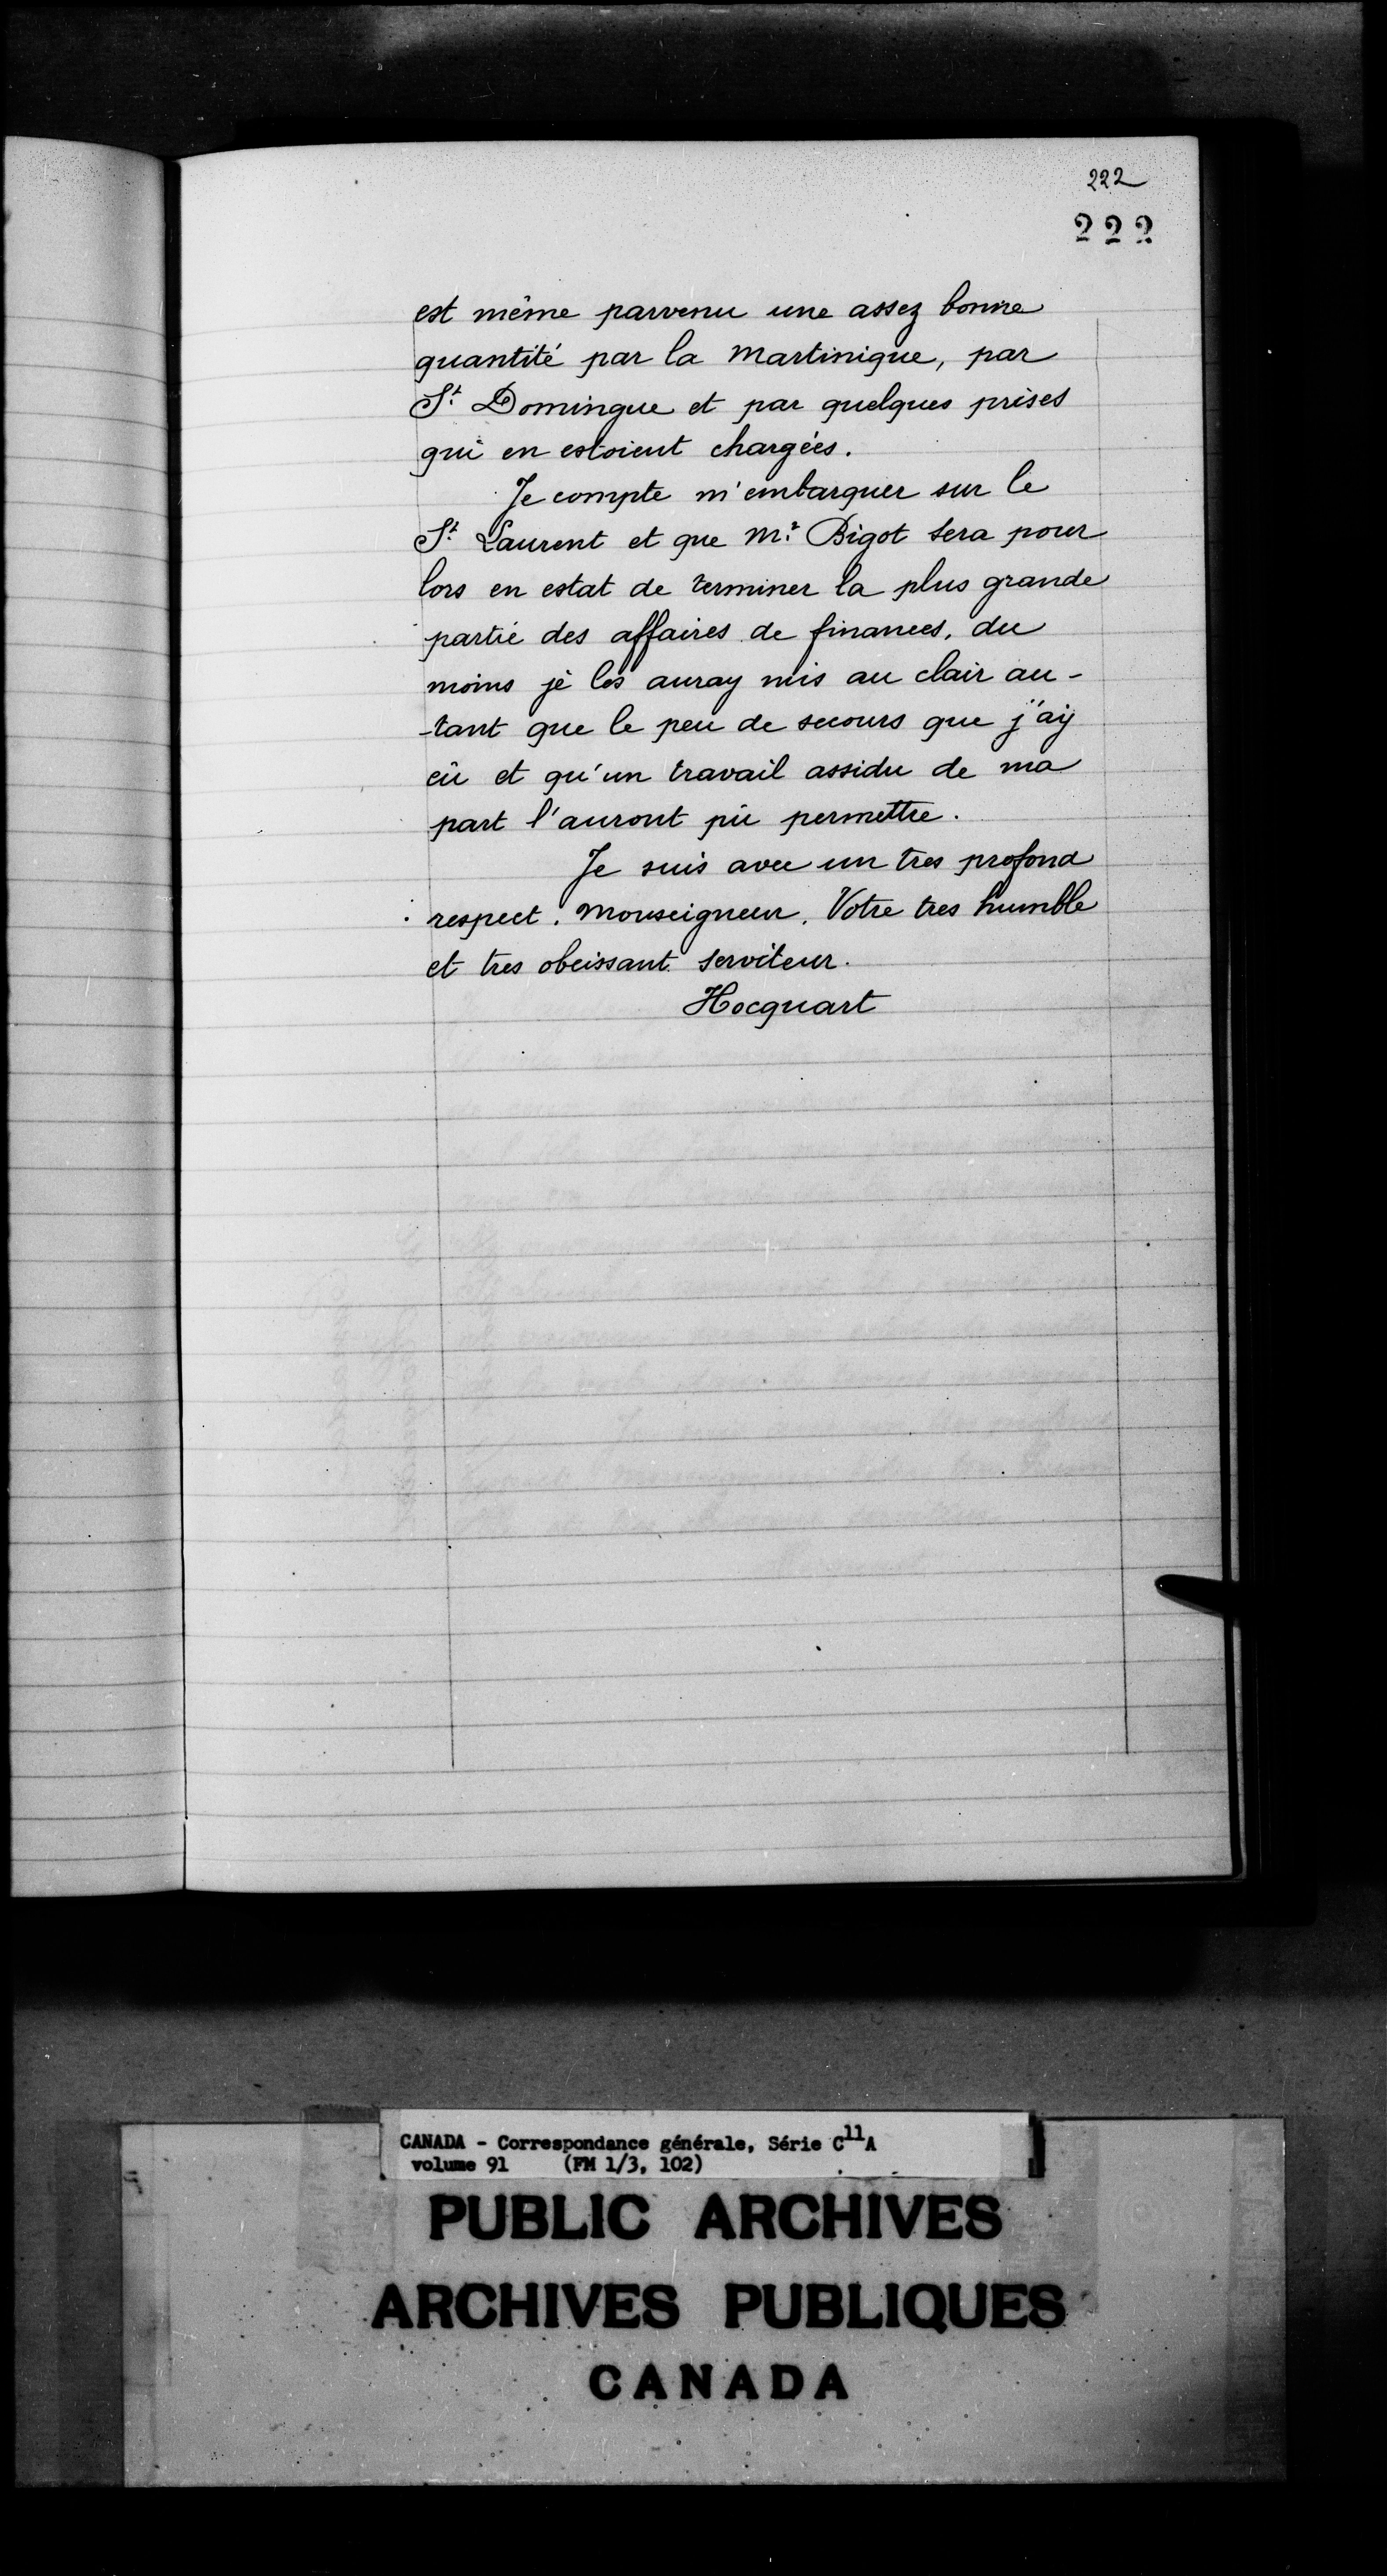 222
222
est même parvenu une assez bonne
quantité par la Martinique, par
St. Domingue et par quelques prises
qui en estoient chargées.
Je compte m'embarquer sur le
St. Laurent et que Mr. Bigot sera pour
lors en estat de terminer la plus grande
partie des affaires de finances, du
moins je les auray mis au clair au-
-tant que le peu de secours que j'aÿ
eû et qu'un travail assidu de ma
part l'auront pû permettre.
Je suis avec un tres profond
respect. Monseigneur. Votre tres humble
et tres obeissant serviteur.
Hocquart
CANADA - Correspondance générale, Série C11A
volume 91 (FM 1/3, 102)
PUBLIC ARCHIVES
ARCHIVES PUBLIQUES
CANADA